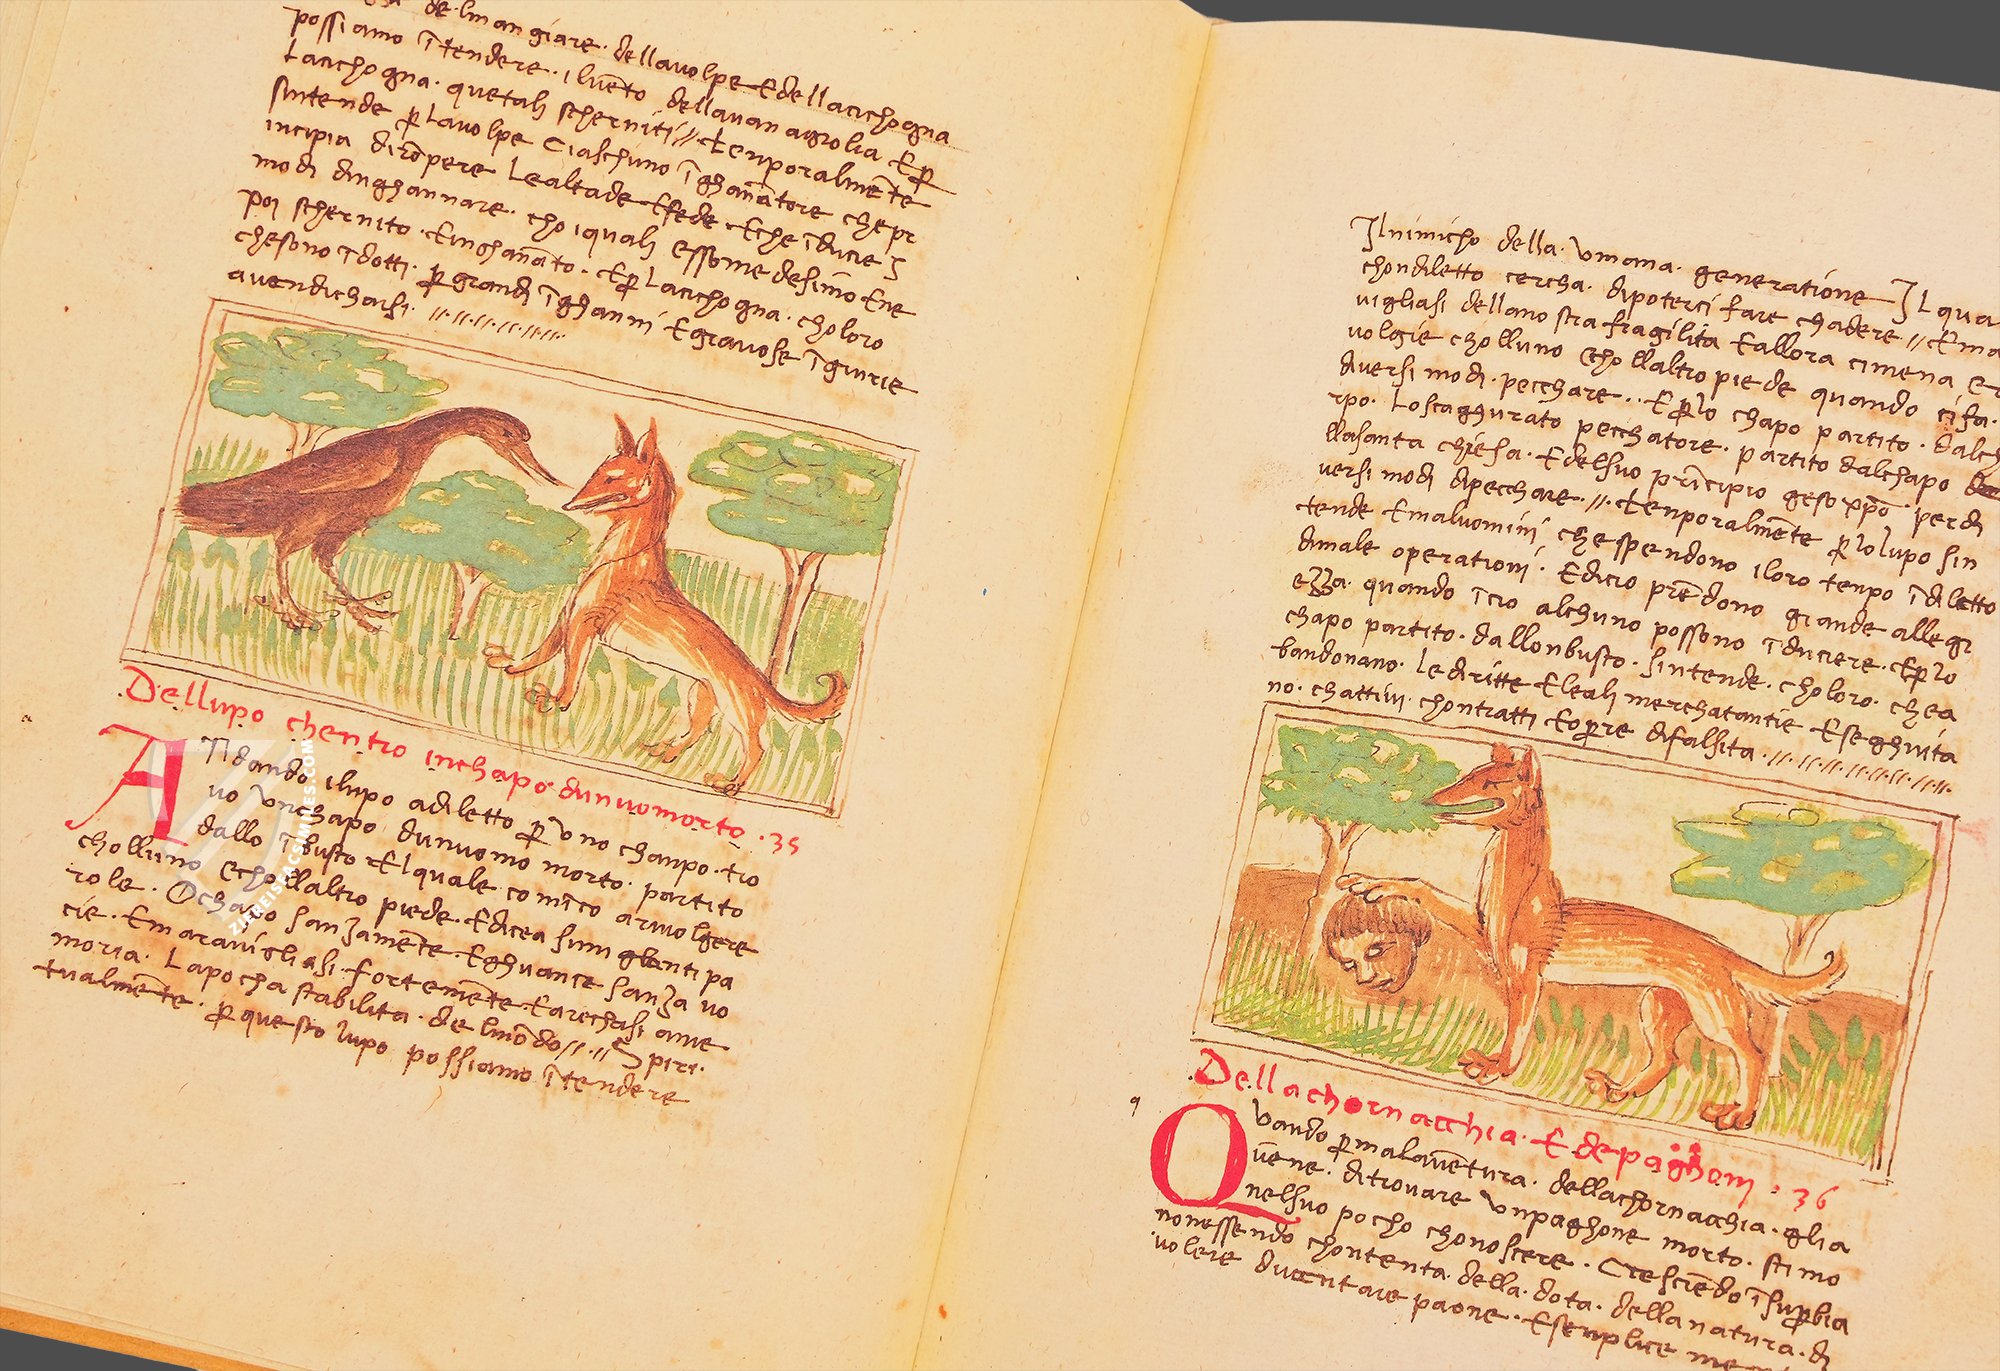 de lman giare. dellavolpe Edellacichogna
possiamo ītendere. iluēto dellavan agrolia Eꝑ
Lacichogna. quetalj scherniti // Tenporalmēte
sintende ꝑ Lavolpe Ciaschuno īghanātore chepr
incipia dirōpere Lealtade Efede Eche īducie j
modj dinghannare. cho iqualj essome desimo Ene
poj schernito. Einghanāto. Eꝑ Lacichogna. choloro
chesono īdotti. ꝑ grandj īghannj Egravose īgiurie
avendicharsi. //.//.//.//.//.//.//.
.Dellupo chentro inchapo dunuomorto .35
ATidando ilupo adiletto ꝑ vno chanpo. tro
vo vnchapo dunuomo morto. partito
dallo ībusto Elquale comīco arivolgere
cholluno echollaltro piede. Edicea sumiglianti pa
role. O chapo sanzamēte. Eghuance sanza vo
cie. Emaravigliasi fortemēte. Earechasi ame
moria. Lapocha stabilita. de lmōdo //.// Spiri.
tualmēte. ꝑ questo lupo possiamo ītendere
ZIEREISFACSIMILES.COM
Ilnimicho della. vmana. generatione Ilqua
chondiletto cercha. dipoterci fare chadere // Ema
vigliasi dellanostra fragilita Eallora cimena
volgie cholluno Echollaltro piede quando cifa.
diversi modj. pecchare.. Eꝑlo chapo partito. dalch
rpo. Losciaghurato pecchatore. partito dalchapo
llasanta chiesa. Edelsuo prīncipio geso xp̄o. perdj
versi modj dipecchare. //. Tenporalmēte ꝑ lolupo sin
tende Emaluominj che spendono iloro tenpo īdiletto
dimale operationj. Edicio prēdono grande allegr
ezza. quando īcio alchuno possono īduciere. Eꝑlo
chapo partito. dallonbusto. sintende. choloro. chea
bandonano. le diritte Elealj merchatantie Eseghuita
no. chattivj. chontratti Eopre difalsita. //.//.//.//.//.//.
.Dellachornacchia. Edepaghonj. 36
QVando ꝑmalavētura. dellachornacchia. glia
vēne. ditrovare vnpaghone morto. stimo
nelsuo pocho chonoscere. Cresciēdo īsuꝑbia
nonessendo chontenta. della. dota. dellanatura. dj
volere diventare paone. Esenplice